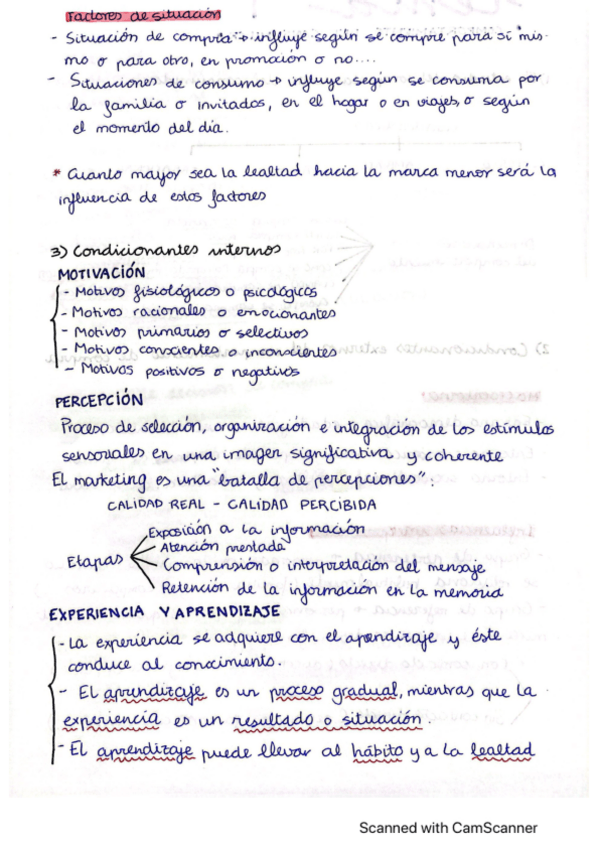 Factores de situación
- Situación de compra → influye según se compre para sí mis-
mo o para otro, en promoción o no....
- Situaciones de consumo → influye según se consuma por
la familia o invitados, en el hogar o en viajes, o según
el momento del día.
* Cuanto mayor sea la lealtad hacia la marca menor será la
influencia de estos factores
3) Condicionantes internos
MOTIVACIÓN
- Motivos fisiológicos o psicológicos
- Motivos racionales o emocionantes
- Motivos primarios o selectivos
- Motivos conscientes o inconscientes
- Motivos positivos o negativos
PERCEPCIÓN
Proceso de selección, organización e integración de los estímulos
sensoriales en una imagen significativa y coherente
El marketing es una "batalla de percepciones":
CALIDAD REAL - CALIDAD PERCIBIDA
Etapas
Exposición a la información
Atención prestada
Comprensión o interpretación del mensaje
Retención de la información en la memoria
EXPERIENCIA Y APRENDIZAJE
- La experiencia se adquiere con el aprendizaje y éste
conduce al conocimiento.
- El aprendizaje es un proceso gradual, mientras que la
experiencia es un resultado o situación.
- El aprendizaje puede llevar al hábito y a la lealtad
Scanned with CamScanner